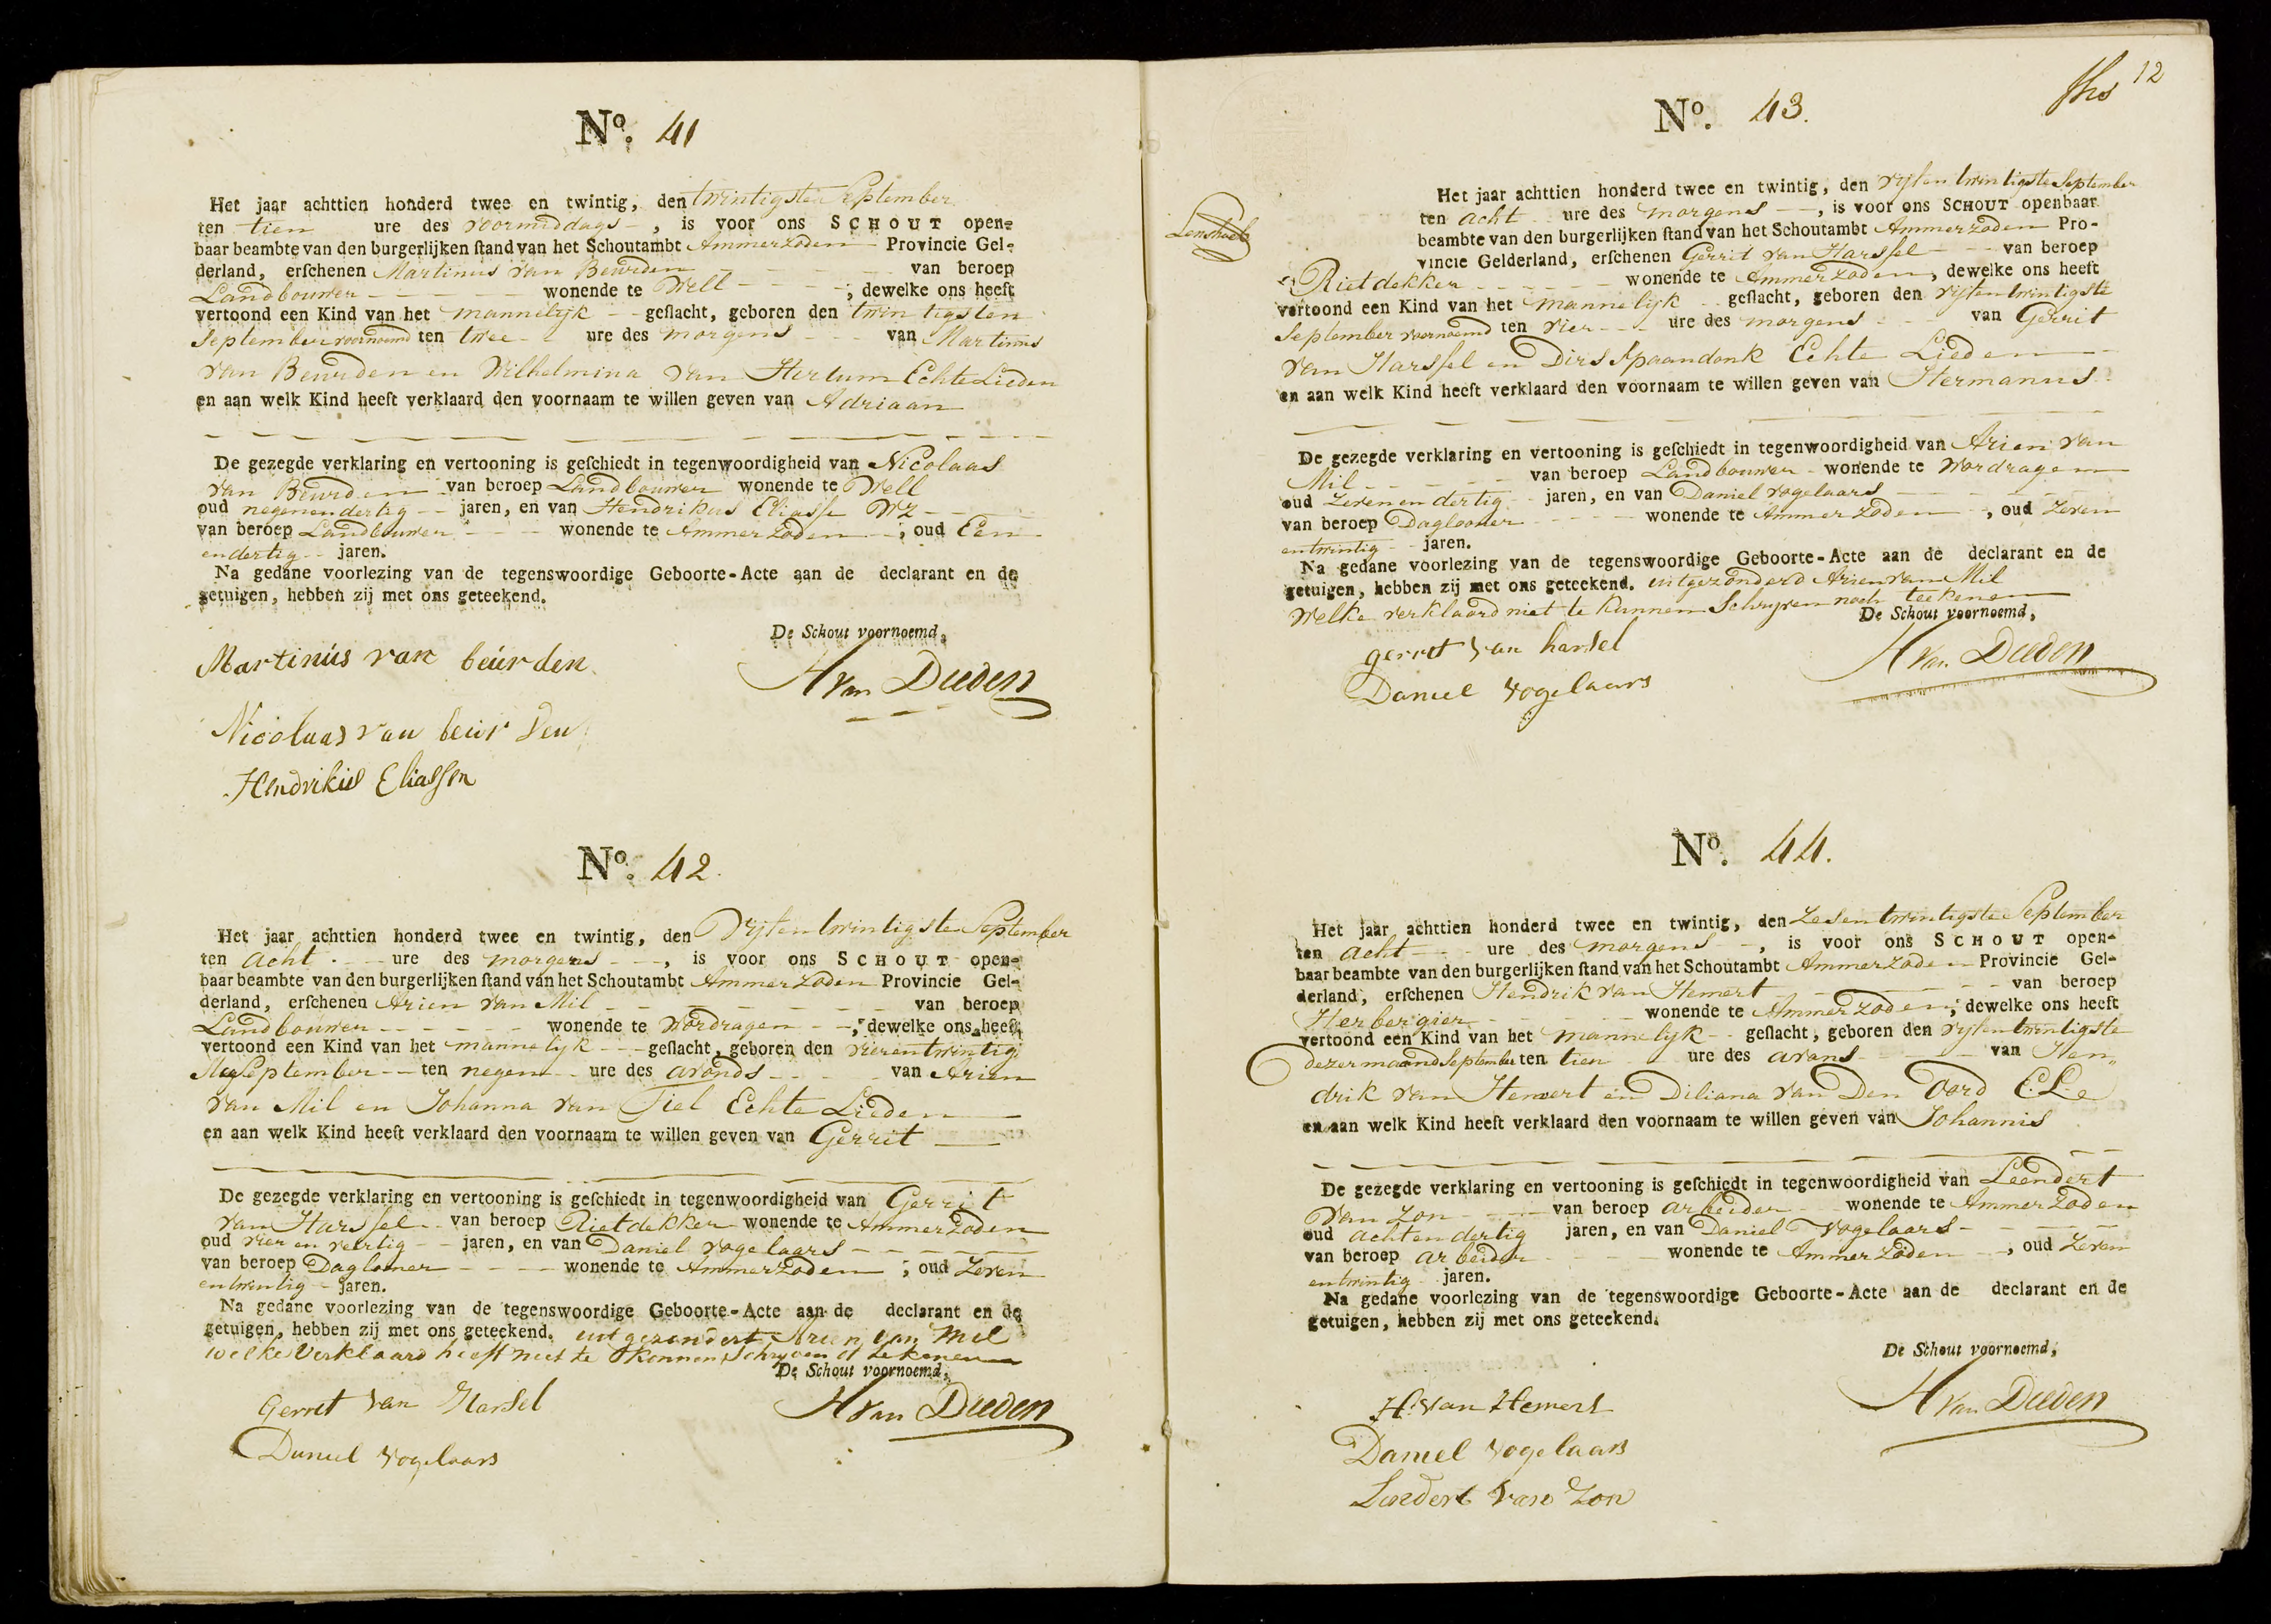 Nº. 41
Het jaar achttien honderd twee en twintig, den twintigsten September
ten tien ure des voormiddags -, is voor ons SCHOUT open-
baar beambte van den burgerlijken stand van het Schoutambt Ammerzoden Provincie Gel-
derland, erschenen Martinus van Beurden van beroep
Landbouwer wonende te Well ; dewelke ons heeft
vertoond een Kind van het mannelijk geslacht, geboren den twintigsten
September voornoemd ten twee ure des morgens van Martinus
van Beurden en Wilhelmina van Hertum Echte Lieden
en aan welk Kind heeft verklaard den voornaam te willen geven van Adriaan
De gezegde verklaring en vertooning is geschiedt in tegenwoordigheid van Nicolaas
van Beurden van beroep Landbouwer wonende te Well
oud negenendertig jaren, en van Hendrikus Eliasse Wz
van beroep Landbouwer wonende te Ammerzoden ; oud Een
endertig jaren.
Na gedane voorlezing van de tegenswoordige Geboorte-Acte aan de declarant en de
getuigen, hebben zij met ons geteekend.
De Schout voornoemd,
Martinus van beurden
H van Deeden
Nicolaas van beur den
Hendrikus Eliassen
Nº. 42.
Het jaar achttien honderd twee en twintig, den Vijfentwintigste September
ten acht ure des morgens -, is voor ons SCHOUT open-
baar beambte van den burgerlijken stand van het Schoutambt Ammerzoden Provincie Gel-
derland, erschenen Arien van Mil van beroep
Landbouwer wonende te Wordragen -, dewelke ons heeft
vertoond een Kind van het mannelijk geslacht, geboren den vierentwintig
September ten negen ure des avonds van Arien
van Mil en Johanna van Tiel Echte Lieden
en aan welk Kind heeft verklaard den voornaam te willen geven van Gerrit
De gezegde verklaring en vertooning is geschiedt in tegenwoordigheid van Gerrit
van Harssel van beroep Rietdekker wonende te Ammerzoden
oud vier en veertig jaren, en van Daniel vogelaars
van beroep Daglooner wonende te Ammerzoden ; oud Zeven
entwintig jaren.
Na gedane voorlezing van de tegenswoordige Geboorte-Acte aan de declarant en de
getuigen, hebben zij met ons geteekend. uit gezondert Arien van Mel
welke Verklaard heeft niet te konnen Schryven of tekenen
De Schout voornoemd,
Gerret van Harsel
H van Deeden
Daniel vogelaars
12
Nº. 43.
Het jaar achttien honderd twee en twintig, den vijfentwintigste September
ten acht ure des morgens -, is voor ons SCHOUT openbaar
beambte van den burgerlijken stand van het Schoutambt Ammerzoden Pro-
vincie Gelderland, erschenen Gerrit van Harssel van beroep
Rietdekker wonende te Ammerzoden, dewelke ons heeft
vertoond een Kind van het mannelijk geslacht, geboren den vijfentwintigste
September voornoemd ten vier ure des morgens van Gerrit
van Harssel en Dirs Spaandonk Echte Lieden
en aan welk Kind heeft verklaard den voornaam te willen geven van Hermanus
De gezegde verklaring en vertooning is geschiedt in tegenwoordigheid van Arien van
Mil van beroep Landbouwer wonende te Wordragen
oud Zevenendertig jaren, en van Daniel vogelaars
van beroep Daglooner wonende te Ammerzoden -, oud Zeven
entwintig jaren.
Na gedane voorlezing van de tegenswoordige Geboorte-Acte aan de declarant en de
getuigen, hebben zij met ons geteekend. uitgezonderd Arien van Mil
welke verklaard niet te kunnen Schryven noch teekenen
De Schout voornoemd,
gerret van harsel
H van Deeden
Daniel vogelaars
Nº. 44.
Het jaar achttien honderd twee en twintig, den Zesentwintigste September
ten acht ure des morgens -, is voor ons SCHOUT open-
baar beambte van den burgerlijken stand van het Schoutambt Ammerzoden Provincie Gel-
derland, erschenen Hendrik van Hemert van beroep
Herbergier wonende te Ammerzoden; dewelke ons heeft
vertoond een Kind van het mannelijk geslacht, geboren den vijfentwintigste
dezer maand September ten tien ure des avons van Hen,,
drik van Hemert en Diliana van Den Oord E Le
en aan welk Kind heeft verklaard den voornaam te willen geven van Johannis
De gezegde verklaring en vertooning is geschiedt in tegenwoordigheid van Leendert
van Zon van beroep arbeider wonende te Ammerzoden
oud achtendertig jaren, en van Daniel Vogelaars
van beroep arbeider wonende te Ammerzoden -, oud Zeven
entwintig jaren.
Na gedane voorlezing van de tegenswoordige Geboorte-Acte aan de declarant en de
getuigen, hebben zij met ons geteekend.
De Schout voornoemd,
H. van Hemert
H van Deeden
Daniel vogelaars
Leendert van Zon